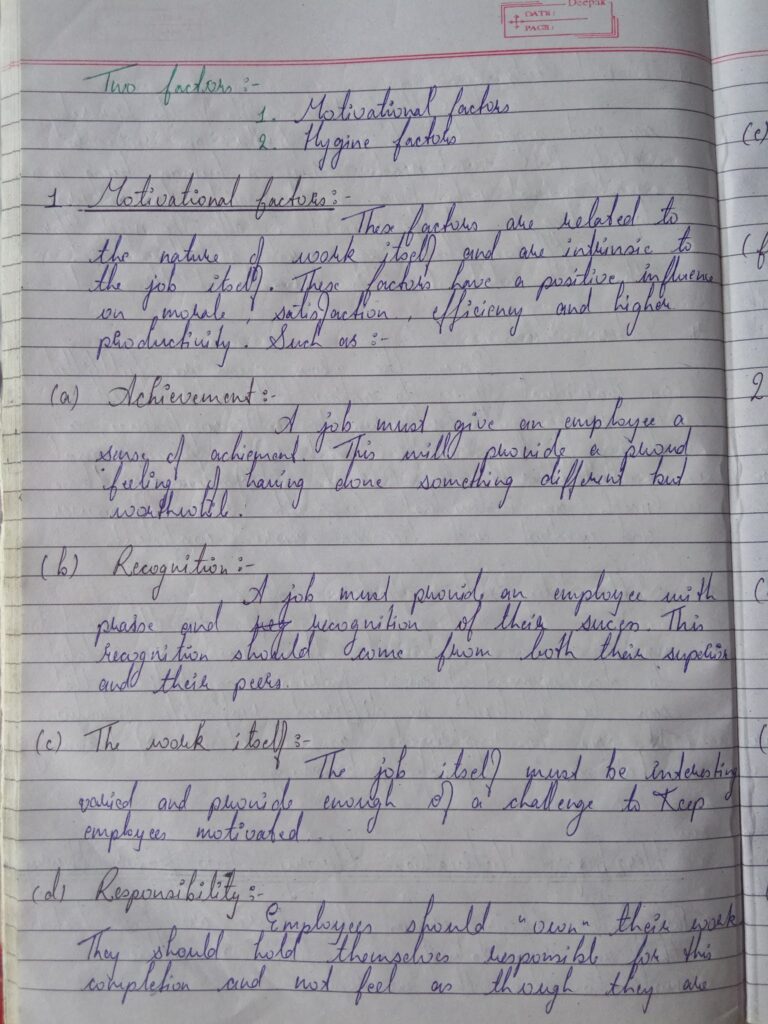 Deepak
DATE:
PAGE:
Two factors:-
1. Motivational factors
2. Hygine factors
1. Motivational factors:-
These factors are related to
the nature of work itself and are intrinsic to
the job itself. These factors have a positive influence
on morale, satisfaction, efficiency and higher
productivity. Such as :-
(a) Achievement:-
A job must give an employee a
sense of achiement. This will provide a proud
feeling of having done something different but
worthwhile.
(b) Recognition:-
A job must provide an employee with
praise and recognition of their succes. This
recognition should come from both their superior
and their peers.
(c) The work itself:-
The job itself must be interesting
varied and provide enough of a challenge to keep
employees motivated.
(d) Responsibility:-
Employees should "own" their work
They should hold themselves responsible for this
completion and not feel as through they are
(e)
(f
2